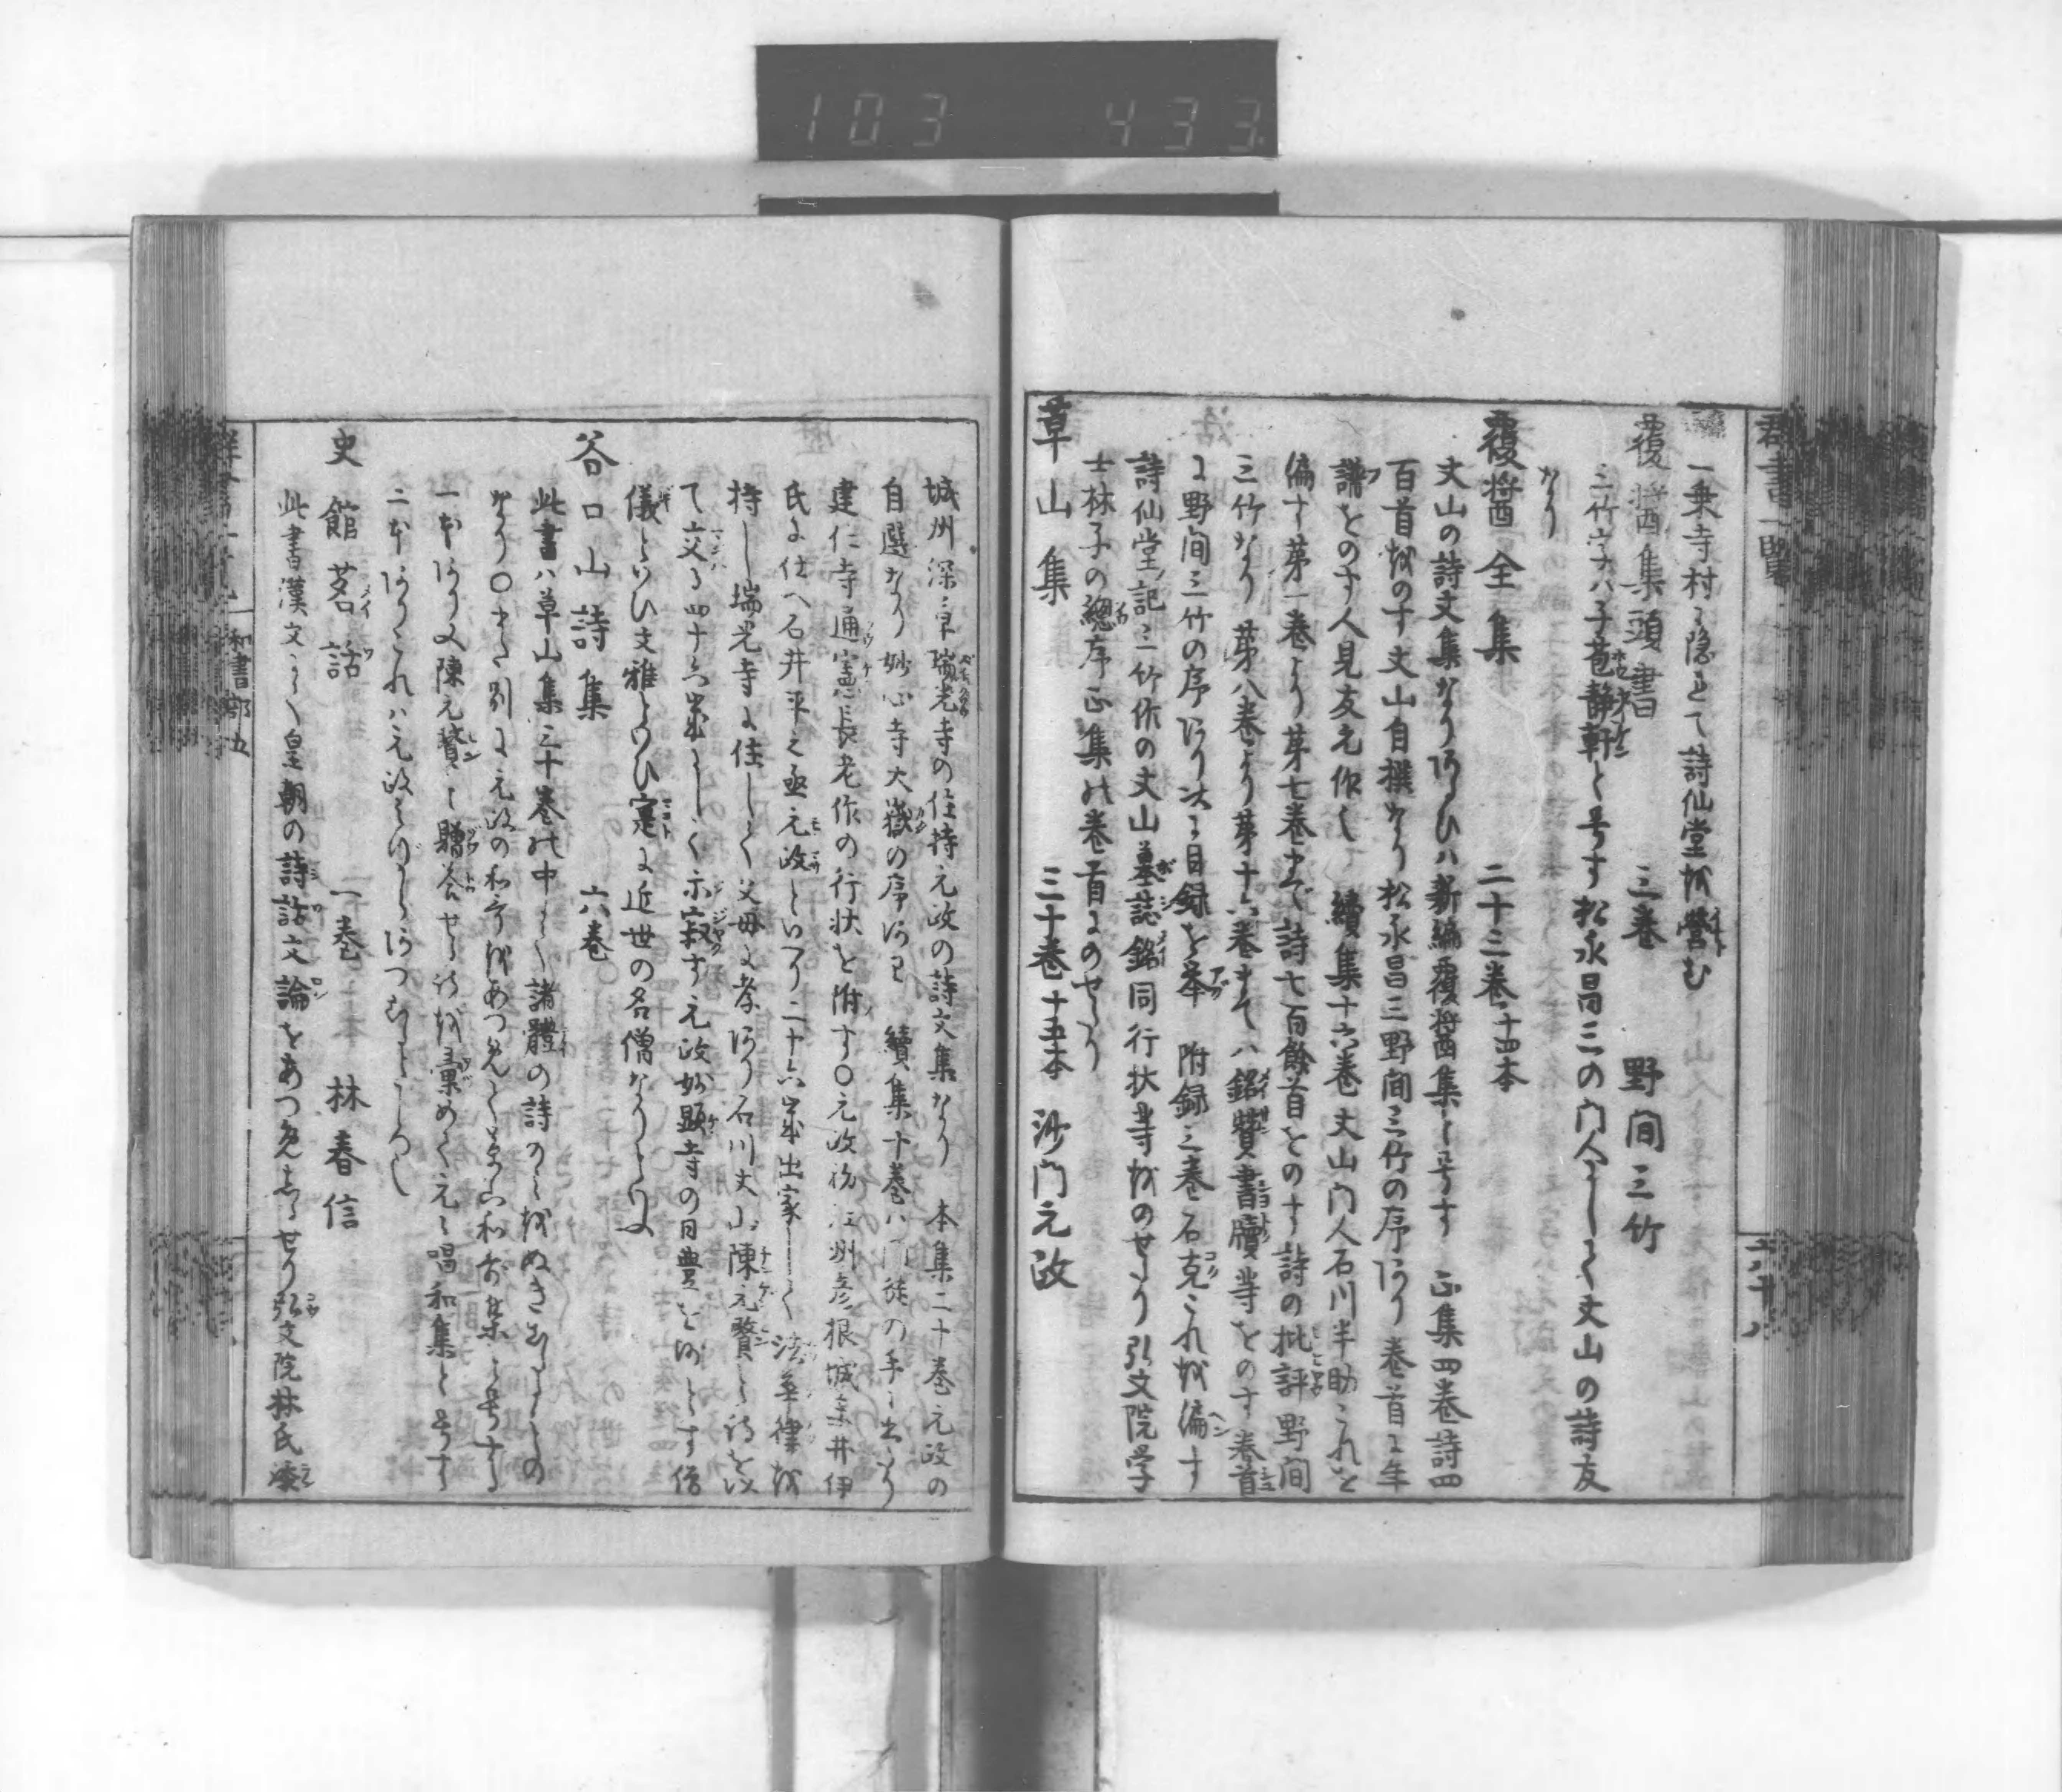 103 433
群書一覧
一乗寺村に隠れて詩仙堂を営む
覆醤集頭書 三巻 野間三竹
三竹字ハ子苞静軒と号す松永昌三の門人にして丈山の詩友
なり
覆醤全集 二十三巻 十四本
丈山の詩文集なりあるひハ新編覆醤集と号す 正集四巻詩四
百首をのす丈山自撰なり松永昌三野間三竹の序あり 巻首に年
譜をのす人見友元作之 續集十六巻丈山門人石川半助これを
偏す第一巻より第七巻まで詩七百餘首をのす詩の批評野間
三竹なり 第八巻より第十六巻まてハ銘賛書牘等をのす巻首
に野間三竹の序あり次に目録を挙 附録三巻石克これを偏す
詩仙堂記三竹作の丈山墓誌銘同行状等をのせたり弘文院学
士林子の總序正集の巻首にのせたり
草山集 三十巻 十五本 沙門元政
城州深草瑞光寺の住持元政の詩文集なり 本集二十巻元政の
自選なり妙心寺大嶽の序あり 續集十巻ハ門徒の手に出たり
建仁寺通憲長老作の行状を附す〇元政初江州彦根城主井伊
氏に仕へ石井平之丞元政といへり二十六歳出家して法華律を
持し瑞光寺に住して父母に孝あり石川丈山陳元贇と詩を以
て交る四十六歳にして示寂す元政妙顕寺の日豊を師とす僧
儀といひ文雅といひ寔に近世の名僧なりといふ
谷口山詩集 六巻
此書ハ草山集三十巻の中にて諸體の詩のみをぬき出したるもの
なり〇また別に元政の和哥をあつめて草山和哥集と号する
一本あり又陳元贇と贈答せし詩を彙めて元々唱和集と号す
二本ありこれハ元政みづからあつむるところ也
史館茗話 一巻 林春信
此書漢文にて皇朝の詩話文論をあつめしるせり弘文院林氏
和書部五